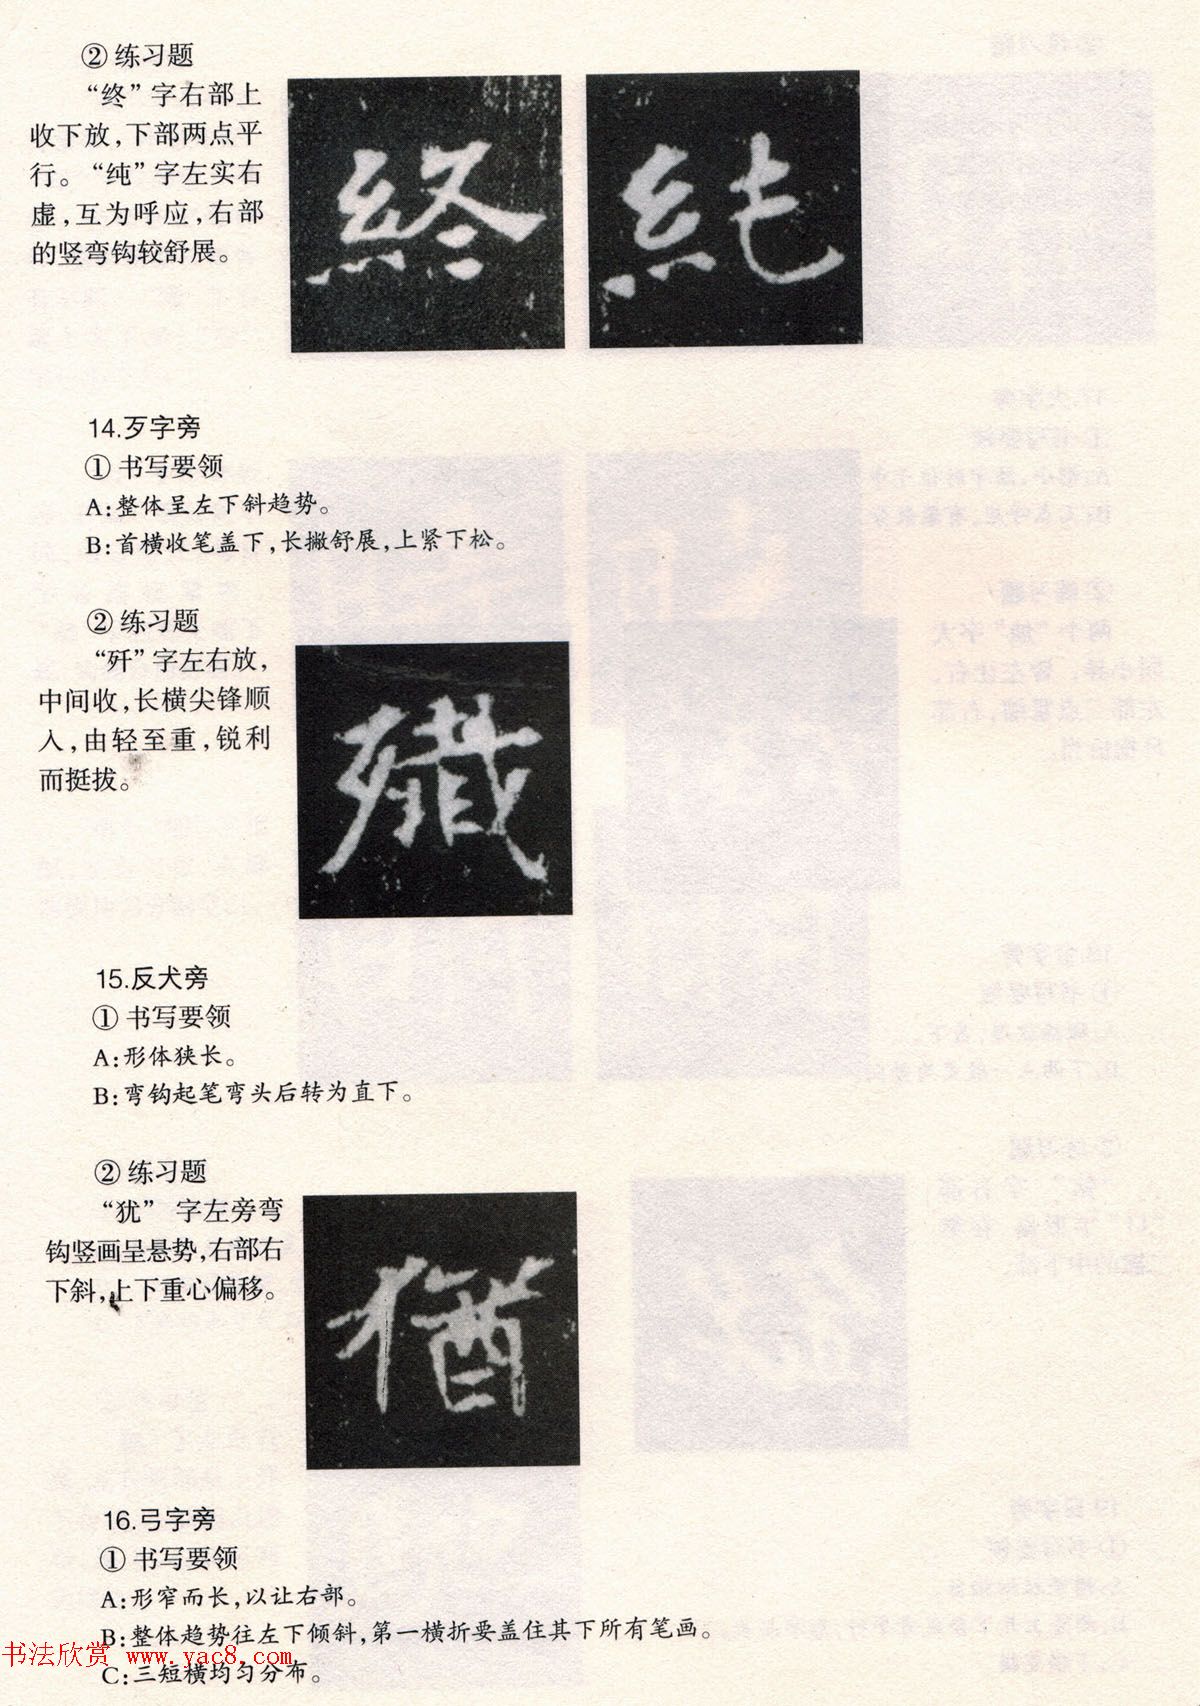 ② 练习题
“终”字右部上
收下放，下部两点平
行。“纯”字左实右
虚，互为呼应，右部
的竖弯钩较舒展。
終
純
14.歹字旁
① 书写要领
A：整体呈左下斜趋势。
B：首横收笔盖下，长撇舒展，上紧下松。
② 练习题
“歼”字左右放，
中间收，长横尖锋顺
入，由轻至重，锐利
而挺拔。
殲
15.反犬旁
① 书写要领
A：形体狭长。
B：弯钩起笔弯头后转为直下。
② 练习题
“犹” 字左旁弯
钩竖画呈悬势，右部右
下斜，上下重心偏移。
猶
16.弓字旁
① 书写要领
A：形窄而长，以让右部。
B：整体趋势往左下倾斜，第一横折要盖住其下所有笔画。
C：三短横均匀分布。
书法欣赏 www.yac8.com